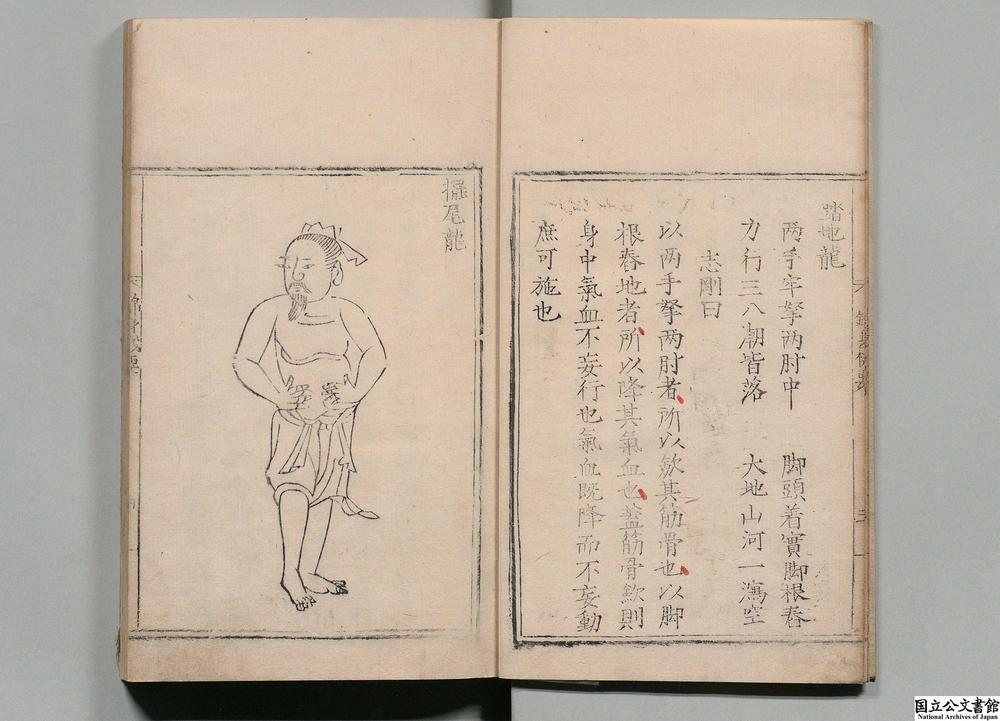 踏地龍
两手牢拏两肘中　脚頭着實脚根舂
力行三八潮皆落　大地山河一瀉空
志剛曰
以两手拏两肘者所以歛其筋骨也以脚
根舂地者所以降其氣血也葢筋骨歛則
身中氣血不妄行也氣血既降而不妄動
庶可施也
擺尾龍
国立公文書館
National Archives of Japan